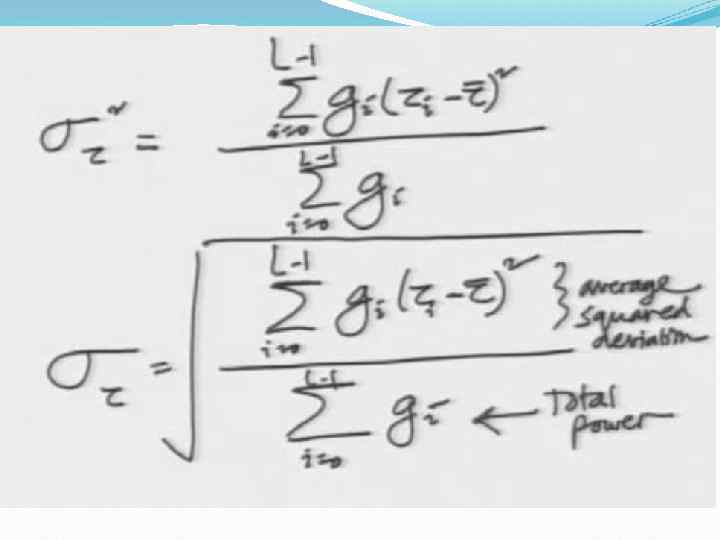 σ_τ² = \frac{\sum_{i=0}^{L-1} g_i (τ_i - \bar{τ})²}{\sum_{i=0}^{L-1} g_i}
σ_τ = \sqrt{\frac{\sum_{i=0}^{L-1} g_i (τ_i - \bar{τ})²}{\sum_{i=0}^{L-1} g_i}}
} average
squared
deviation
← Total
power